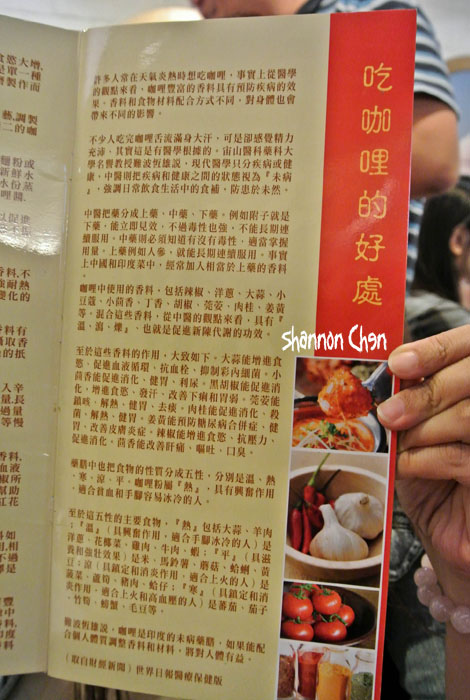 吃咖哩的好處
許多人常在天氣炎熱時想吃咖哩，事實上從醫學
的觀點來看，咖哩豐富的香料具有預防疾病的效
果，香料和食物材料配合方式不同，對身體也會
帶來不同的影響。
不少人吃完咖哩舌流滿身大汗，可是卻感覺精力
充沛，其實這是有醫學根據的。富山醫科藥科大
學名譽教授難波恆雄說，現代醫學只分疾病或健
康，中醫則把疾病和健康之間的狀態視為『未病
』，強調日常飲食生活中的食補，防患於未然。
中醫把藥分成上藥、中藥、下藥，例如附子就是
下藥，能立即見效，不過毒性也強，不能長期連
續服用，中藥則必須知道有沒有毒性，適當掌握
用量。上藥例如人參，就能長期連續服用。事實
上中國和印度菜中，經常加入相當於上藥的香料
咖哩中使用的香料，包括辣椒、洋蔥、大蒜、小
豆蔻、小茴香、丁香、胡椒、莞荽、肉桂、姜黃
等，混合這些香料，從中醫的觀點來看，具有『
溫、瀉、燥』，也就是促進新陳代謝的功效。
至於這些香料的作用，大致如下。大蒜能增進食
慾、促進血液循環、抗血栓、抑制彩內細菌。小
茴香能促進消化、健胃、利尿。黑胡椒能促進消
化、增進食慾、發汗、改善下痢和胃弱。莞荽能
鎮咳、解熱、健胃、去痰。肉桂能促進消化、殺
菌、解熱、健胃。姜黃能預防糖尿病合併症、健
胃、改善皮膚炎症。辣椒能增進食慾、抗壓力、
促進消化。茴香能改善肝痛、嘔吐、口臭。
藥膳中也把食物的性質分成五性，分別是溫、熱
、寒、涼、平。咖哩粉屬『熱』，具有興奮作用
，適合貧血和手腳容易冰冷的人。
至於這五性的主要食物，『熱』包括大蒜、羊肉
；『溫』（具興奮作用，適合手腳冰冷的人）是
洋蔥、花椰菜、雞肉、牛肉、蝦；『平』（具滋
養和強壯效果）是米、馬鈴薯、蘑菇、蛤蜊、黃
豆；涼（具鎮定和消炎作用，適合上火的人）是
菠菜、蘆筍、豬肉、蛤仔；『寒』（具鎮定和消
炎作用，適合上火和高血壓的人）是蕃茄、茄子
、竹筍、螃蟹、毛豆等。
難波恆雄說，咖哩是印度的未病藥膳，如果能配
合個人體質調整香料和材料，將對人體有益。
（取自財經新聞）世界日報醫療保健版
shannon Chen